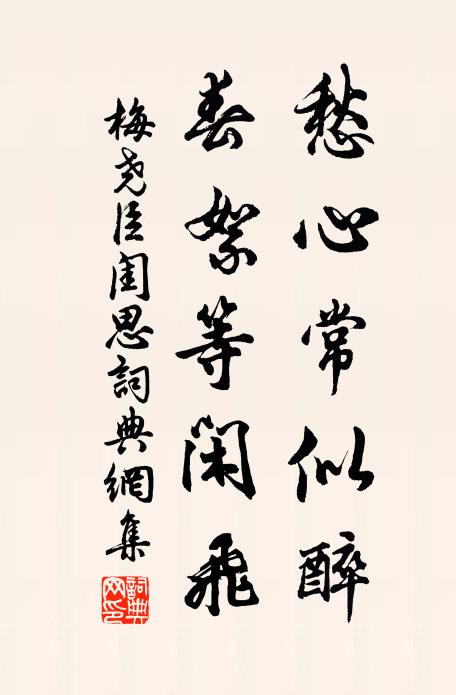 愁心常似醉
春絮等閑飛
梅尧臣閨思詞典網集
詞典網印